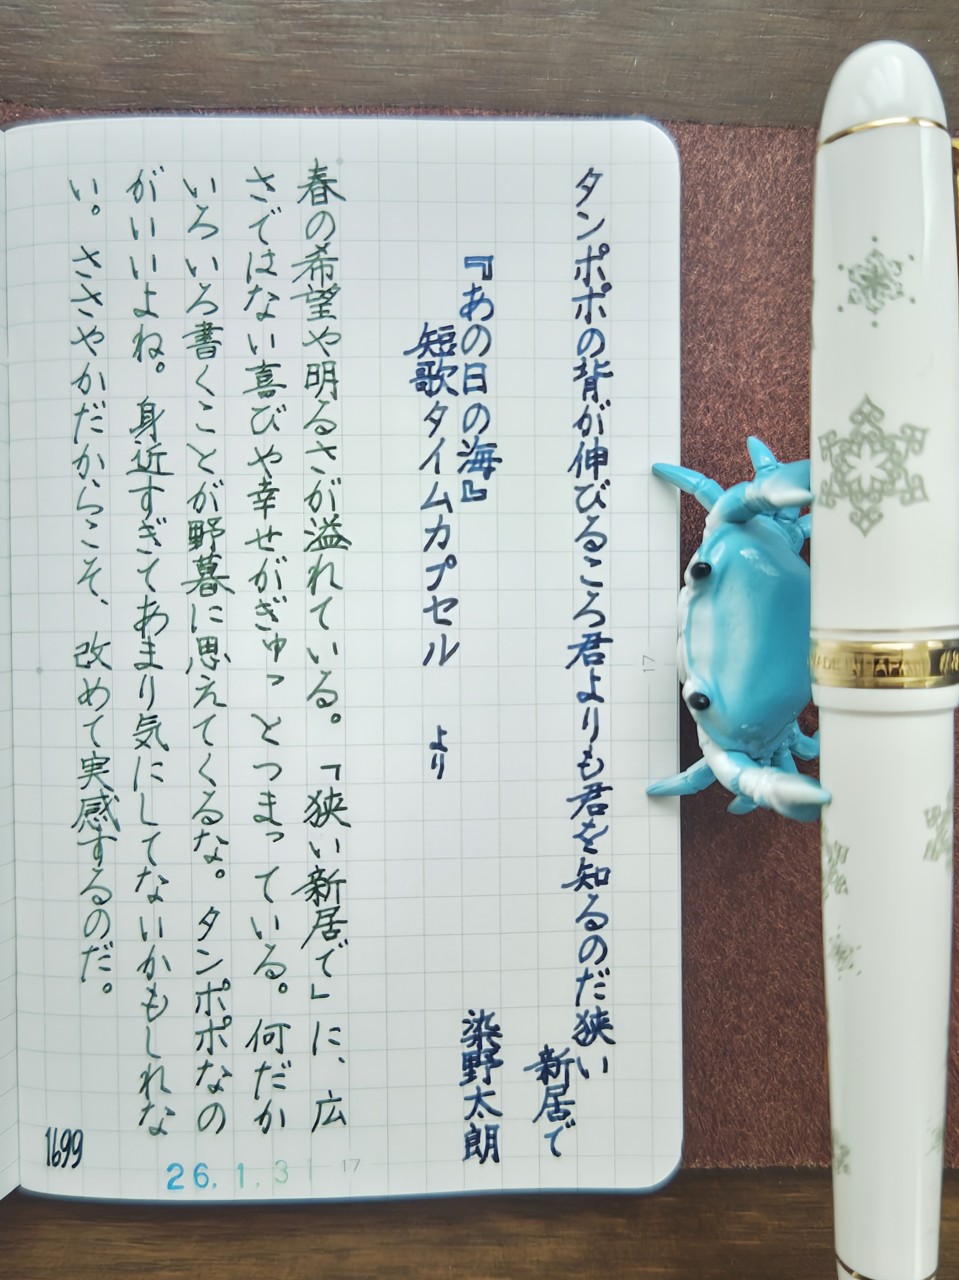 タンポポの背が伸びるころ君よりも君を知るのだ狭い
新居で
『あの日の海』
染野太朗
短歌タイムカプセル より
春の希望や明るさが溢れている。「狭い新居で」に、広
さではない喜びや幸せがぎゅっとつまっている。何だか
いろいろ書くことが野暮に思えてくるな。タンポポなの
がいいよね。身近すぎてあまり気にしてないかもしれな
い。ささやかだからこそ、改めて実感するのだ。
1699
26.1.31
17
17
MADE IN JAPAN